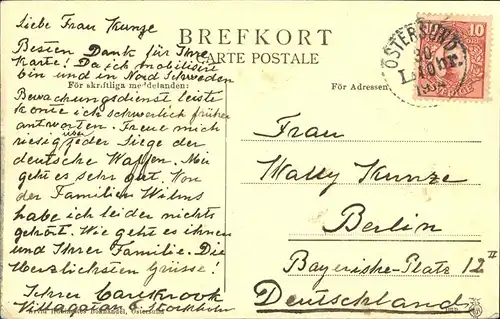 Liebe Frau Kunze
Besten Dank für Ihre
Karte! Da ich mobilisiert
bin und in Nord Schweden
Bewachungsdienst leiste
konte ich schwerlich früher
antworten. Freue mich
riesig über jeder Siege der
deutsche Waffen. Mir
geht es sehr gut. Von
der Familien Wilms
habe ich leider nichts
gehört. Wie geht es ihnen
und Ihrer Familie. Die
Herzlichsten Grüsse!
Ihrer
Stockholm
BREFKORT
CARTE POSTALE
För skriftliga meddelanden:
För Adressen
ÖSTERSUND
10
Frau
Wally Kunze
Berlin
Bayerische-Platz 12 II
Deutschland
Bokhandel, Östersund